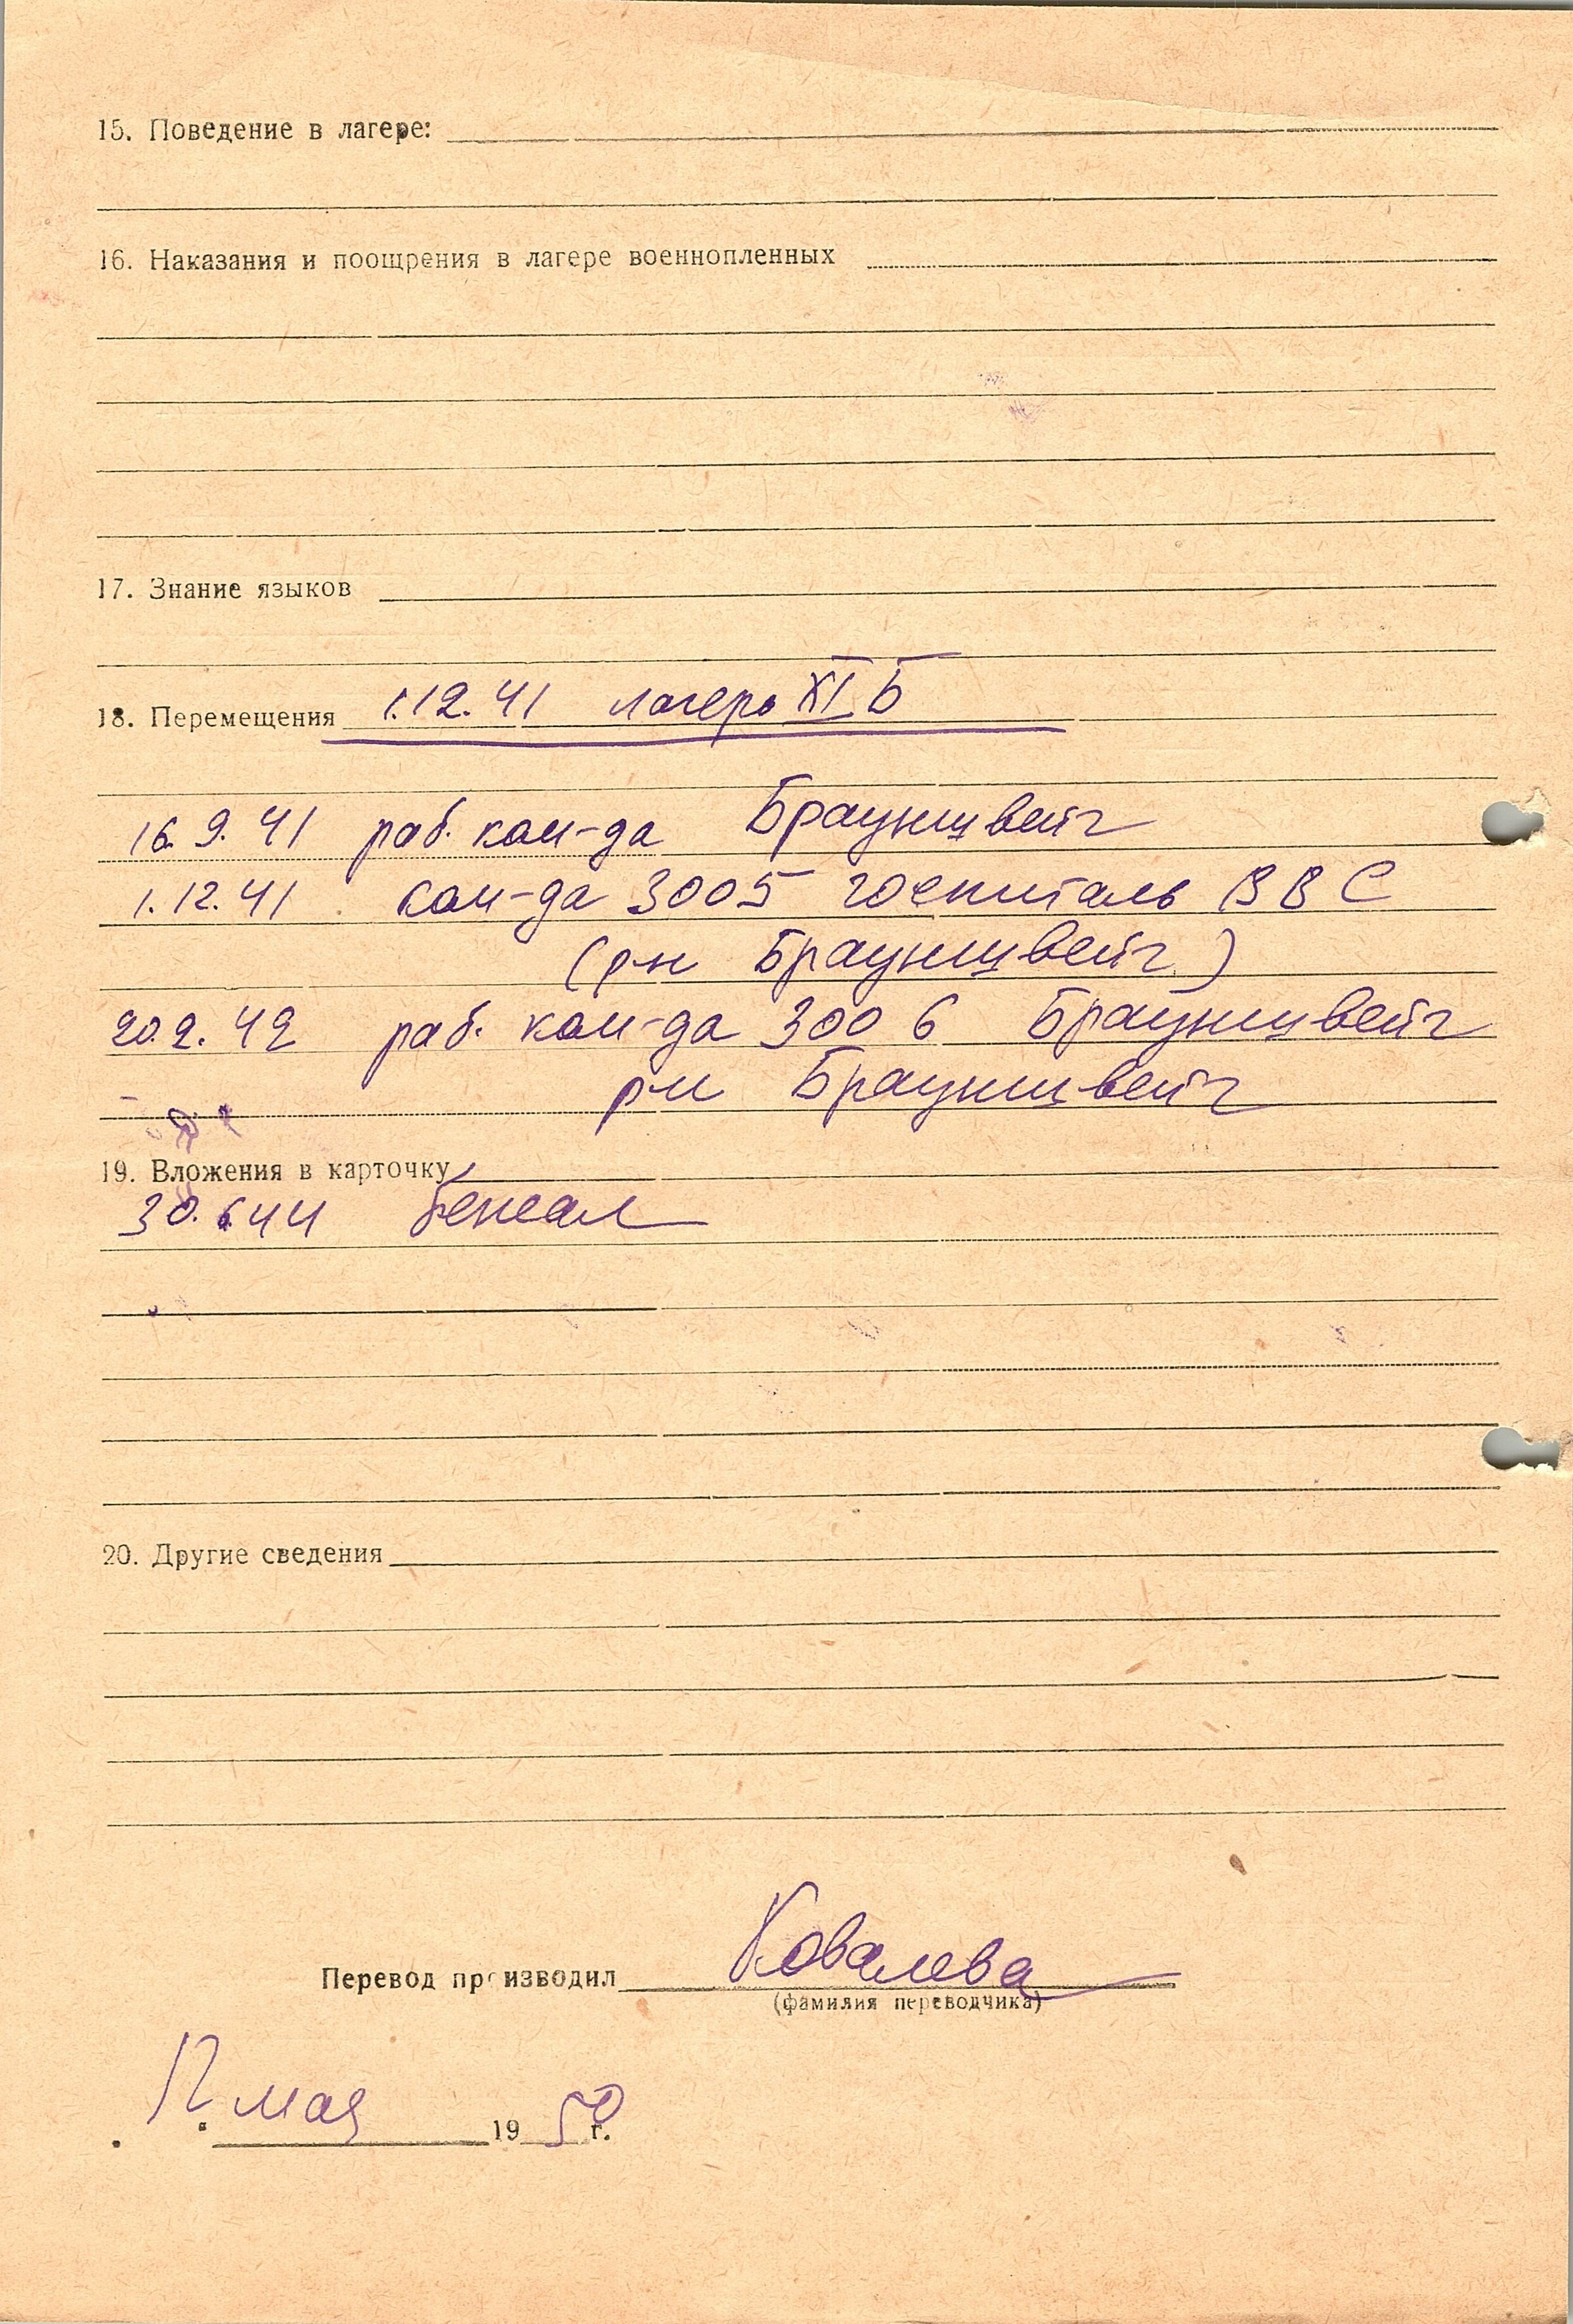 15. Поведение в лагере:
16. Наказания и поощрения в лагере военнопленных
17. Знание языков
18. Перемещения 1.12.41 лагерь XI Б
16.9.41 раб. ком-да Брауншвейг
1.12.41 ком-да 3005 госпиталь ВВС
(р-н Брауншвейг)
20.2.42 раб. ком-да 3006 Брауншвейг
р-н Брауншвейг
19. Вложения в карточку
30.6.44 бежал
20. Другие сведения
Перевод производил Ковалева
(фамилия переводчика)
12 мая 1950 г.